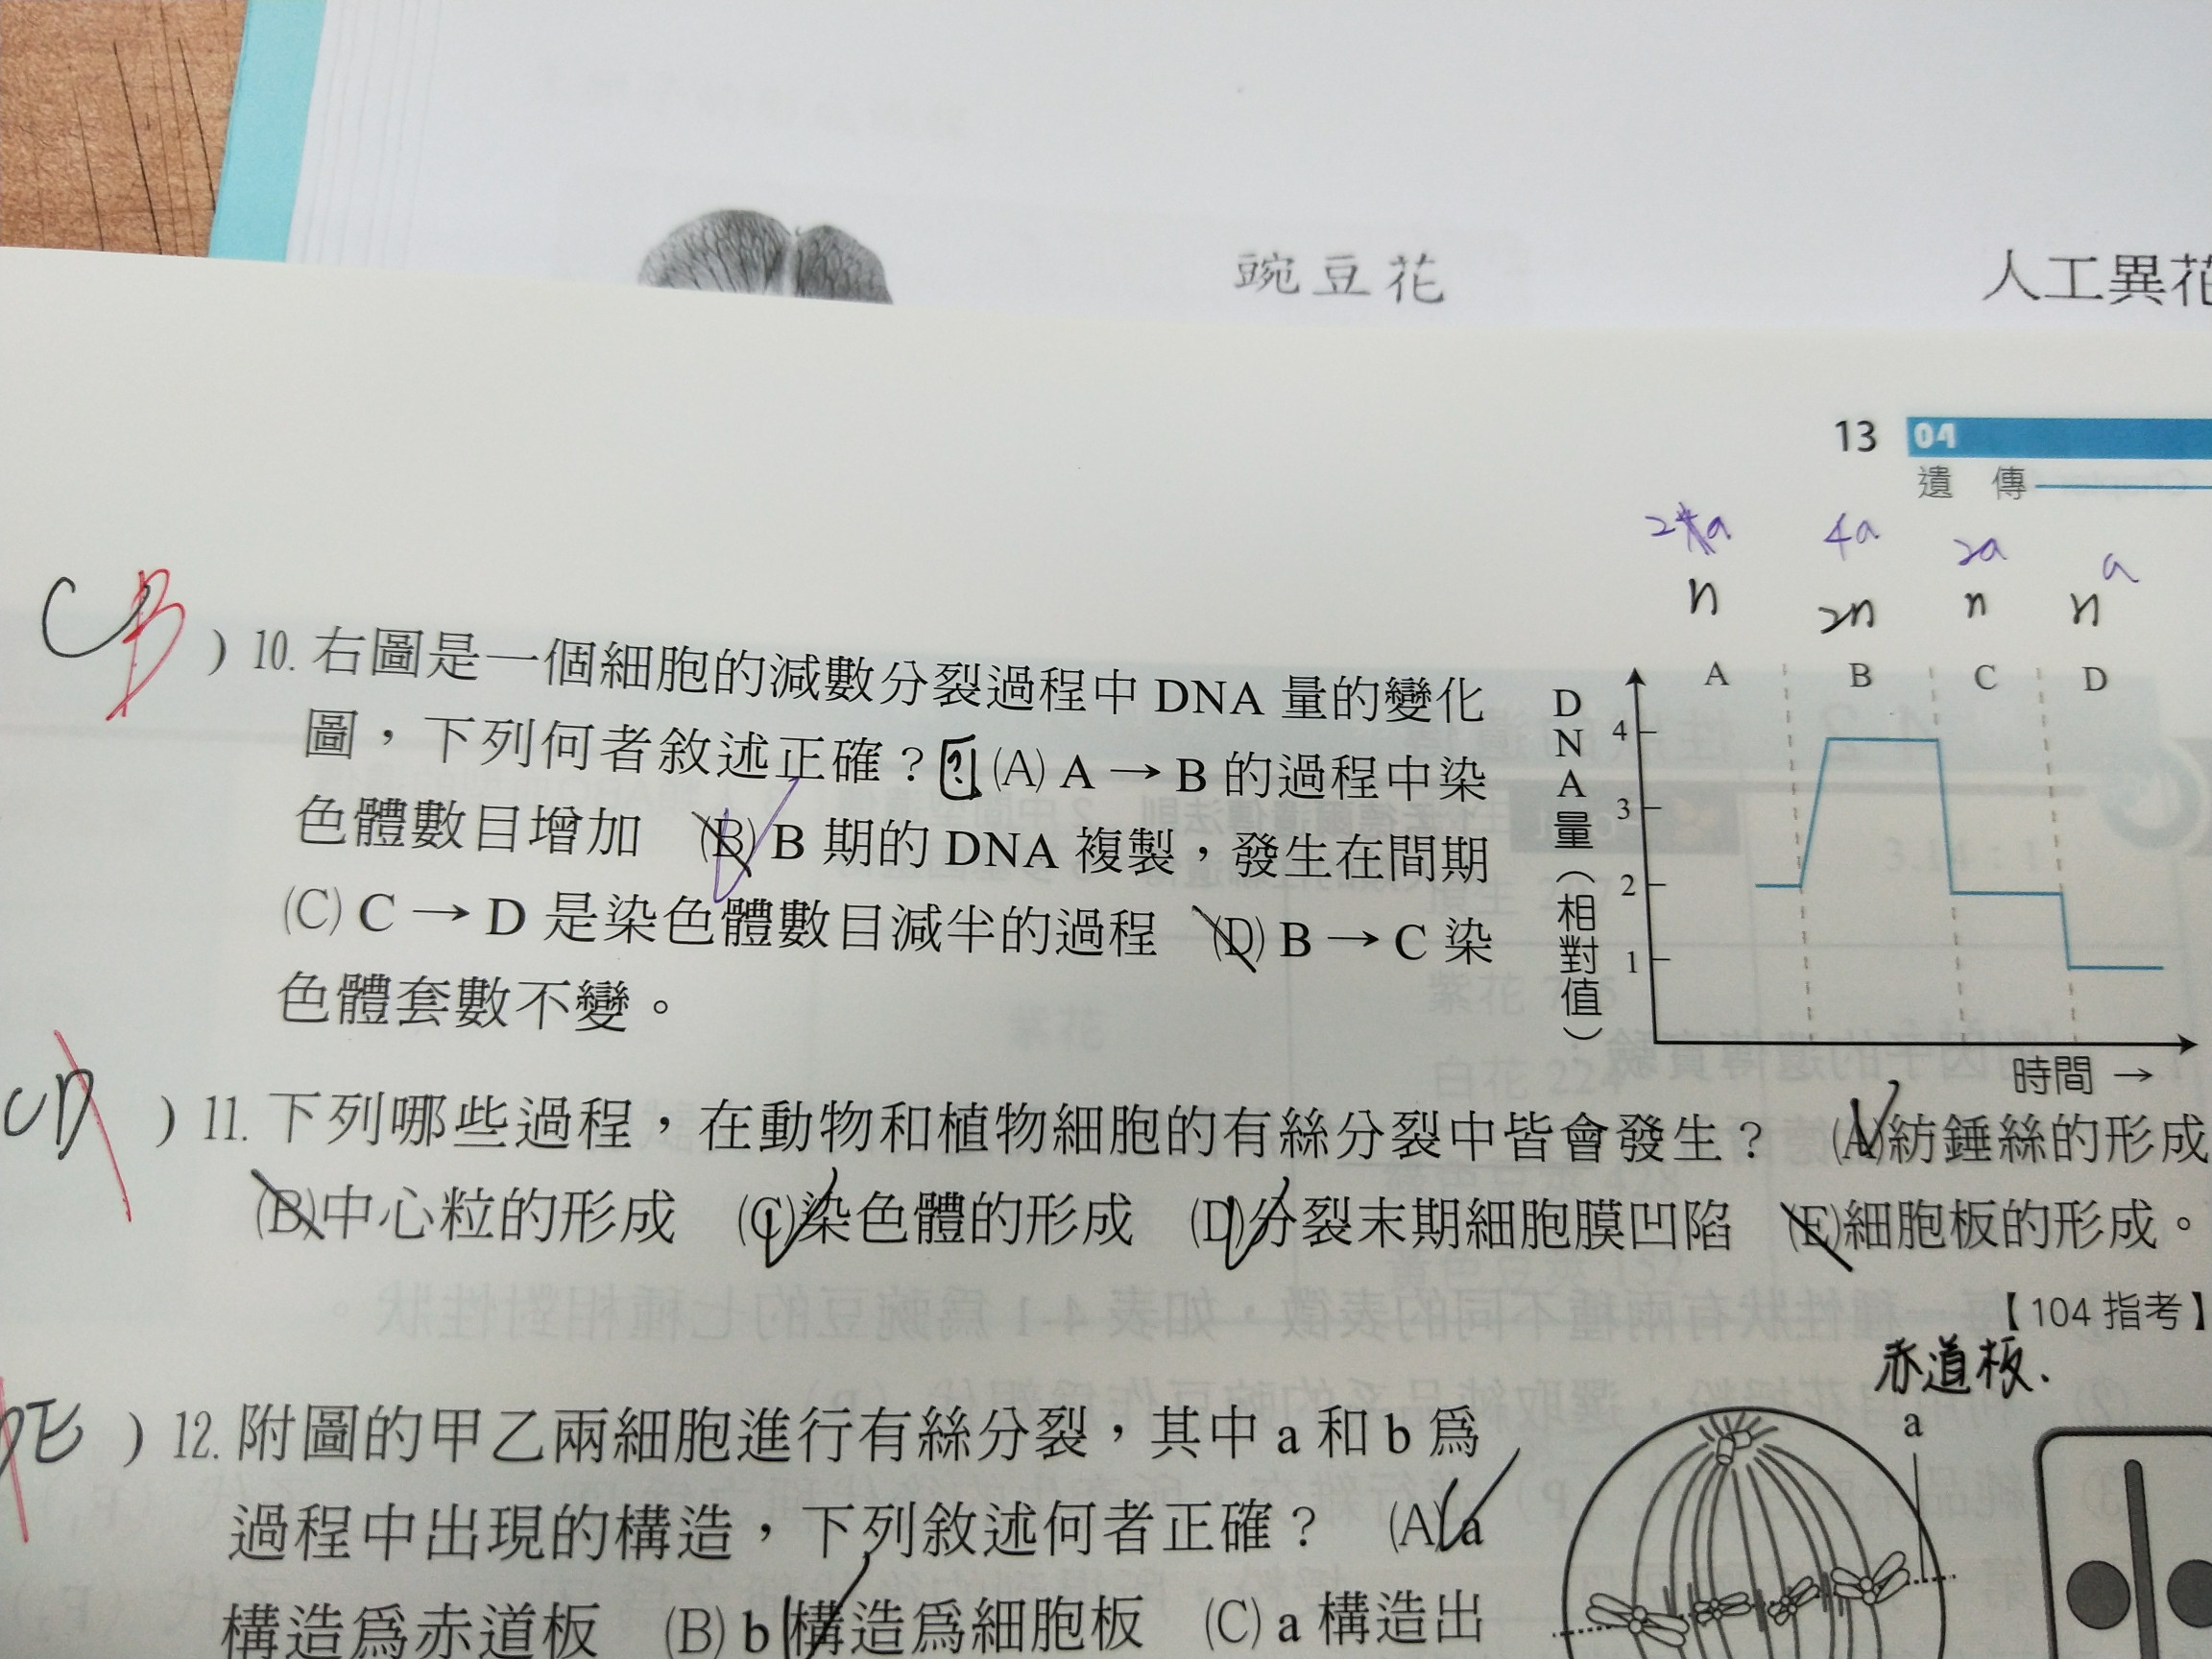 豌豆花
人工異花
13 04
遺 傳
2a 4a 2a a
n 2n n n
A B C D
CB )10. 右圖是一個細胞的減數分裂過程中 DNA 量的變化
圖，下列何者敘述正確？ (A) A → B 的過程中染
色體數目增加 (B) B 期的 DNA 複製，發生在間期
(C) C → D 是染色體數目減半的過程 (D) B → C 染
色體套數不變。
DNA量（相對值）
4
3
2
1
時間 →
CD )11. 下列哪些過程，在動物和植物細胞的有絲分裂中皆會發生？ (A)紡錘絲的形成
(B)中心粒的形成 (C)染色體的形成 (D)分裂末期細胞膜凹陷 (E)細胞板的形成。
【104 指考】
赤道板.
a
DE )12. 附圖的甲乙兩細胞進行有絲分裂，其中 a 和 b 爲
過程中出現的構造，下列敘述何者正確？ (A) a
構造爲赤道板 (B) b 構造爲細胞板 (C) a 構造出